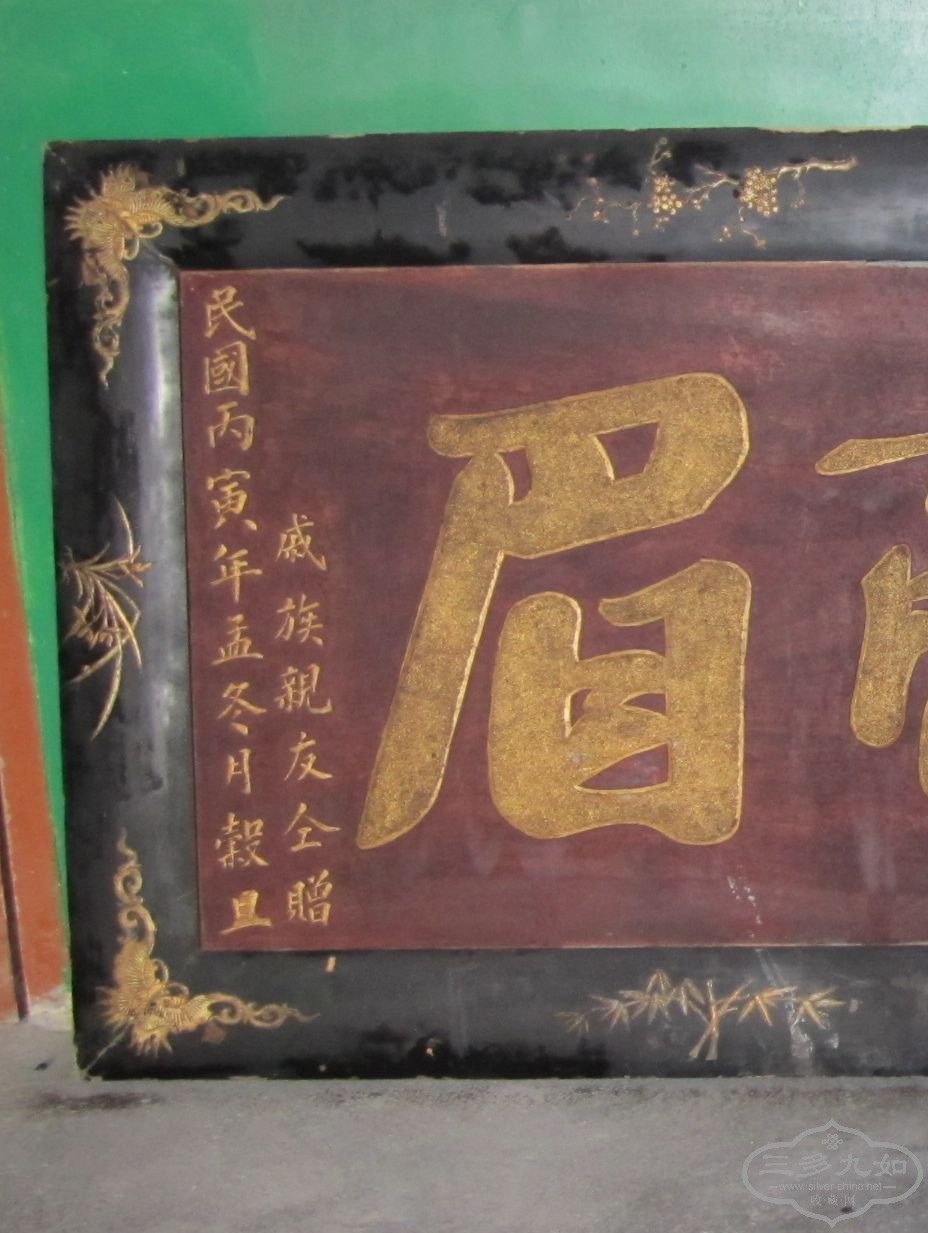 眉
戚族親友仝贈
民國丙寅年孟冬月榖旦
三多九如
www.silver-china.net
收·藏·网